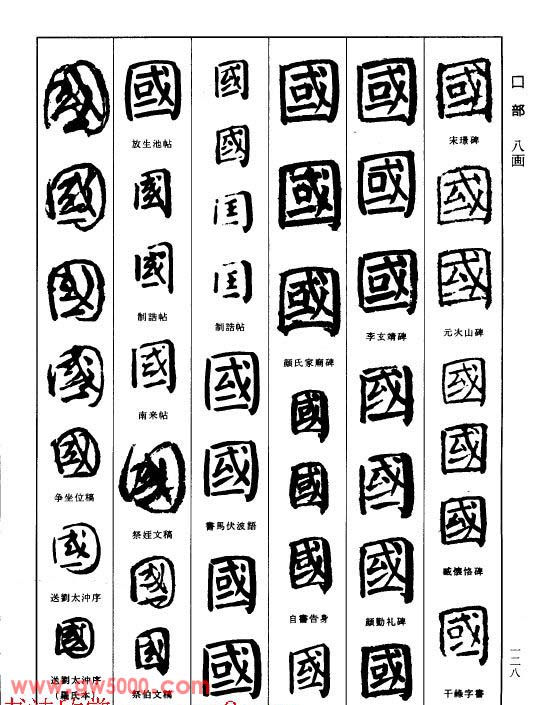 口部 八画
國
宋璟碑
國
國
元次山碑
國
國
國
臧懷恪碑
國
干祿字書
國
國
國
李玄靖碑
國
國
國
顏勤礼碑
國
國
國
國
顏氏家廟碑
國
國
國
自書告身
國
國
國
囯
囯
制誥帖
國
國
書馬伏波語
國
國
國
放生池帖
國
國
制誥帖
國
南来帖
國
祭姪文稿
國
國
祭伯文稿
國
國
國
國
國
争坐位稿
國
送劉太沖序
國
送劉太沖序
(羅氏本)
一二八
www.gw5000.com